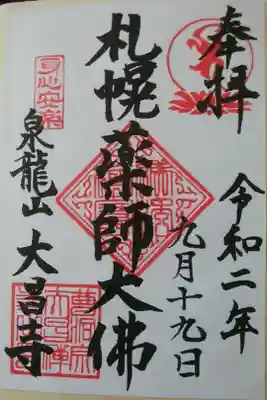 奉拝
令和二年
九月十九日
札幌薬師大佛
身心安楽
泉龍山 大昌寺